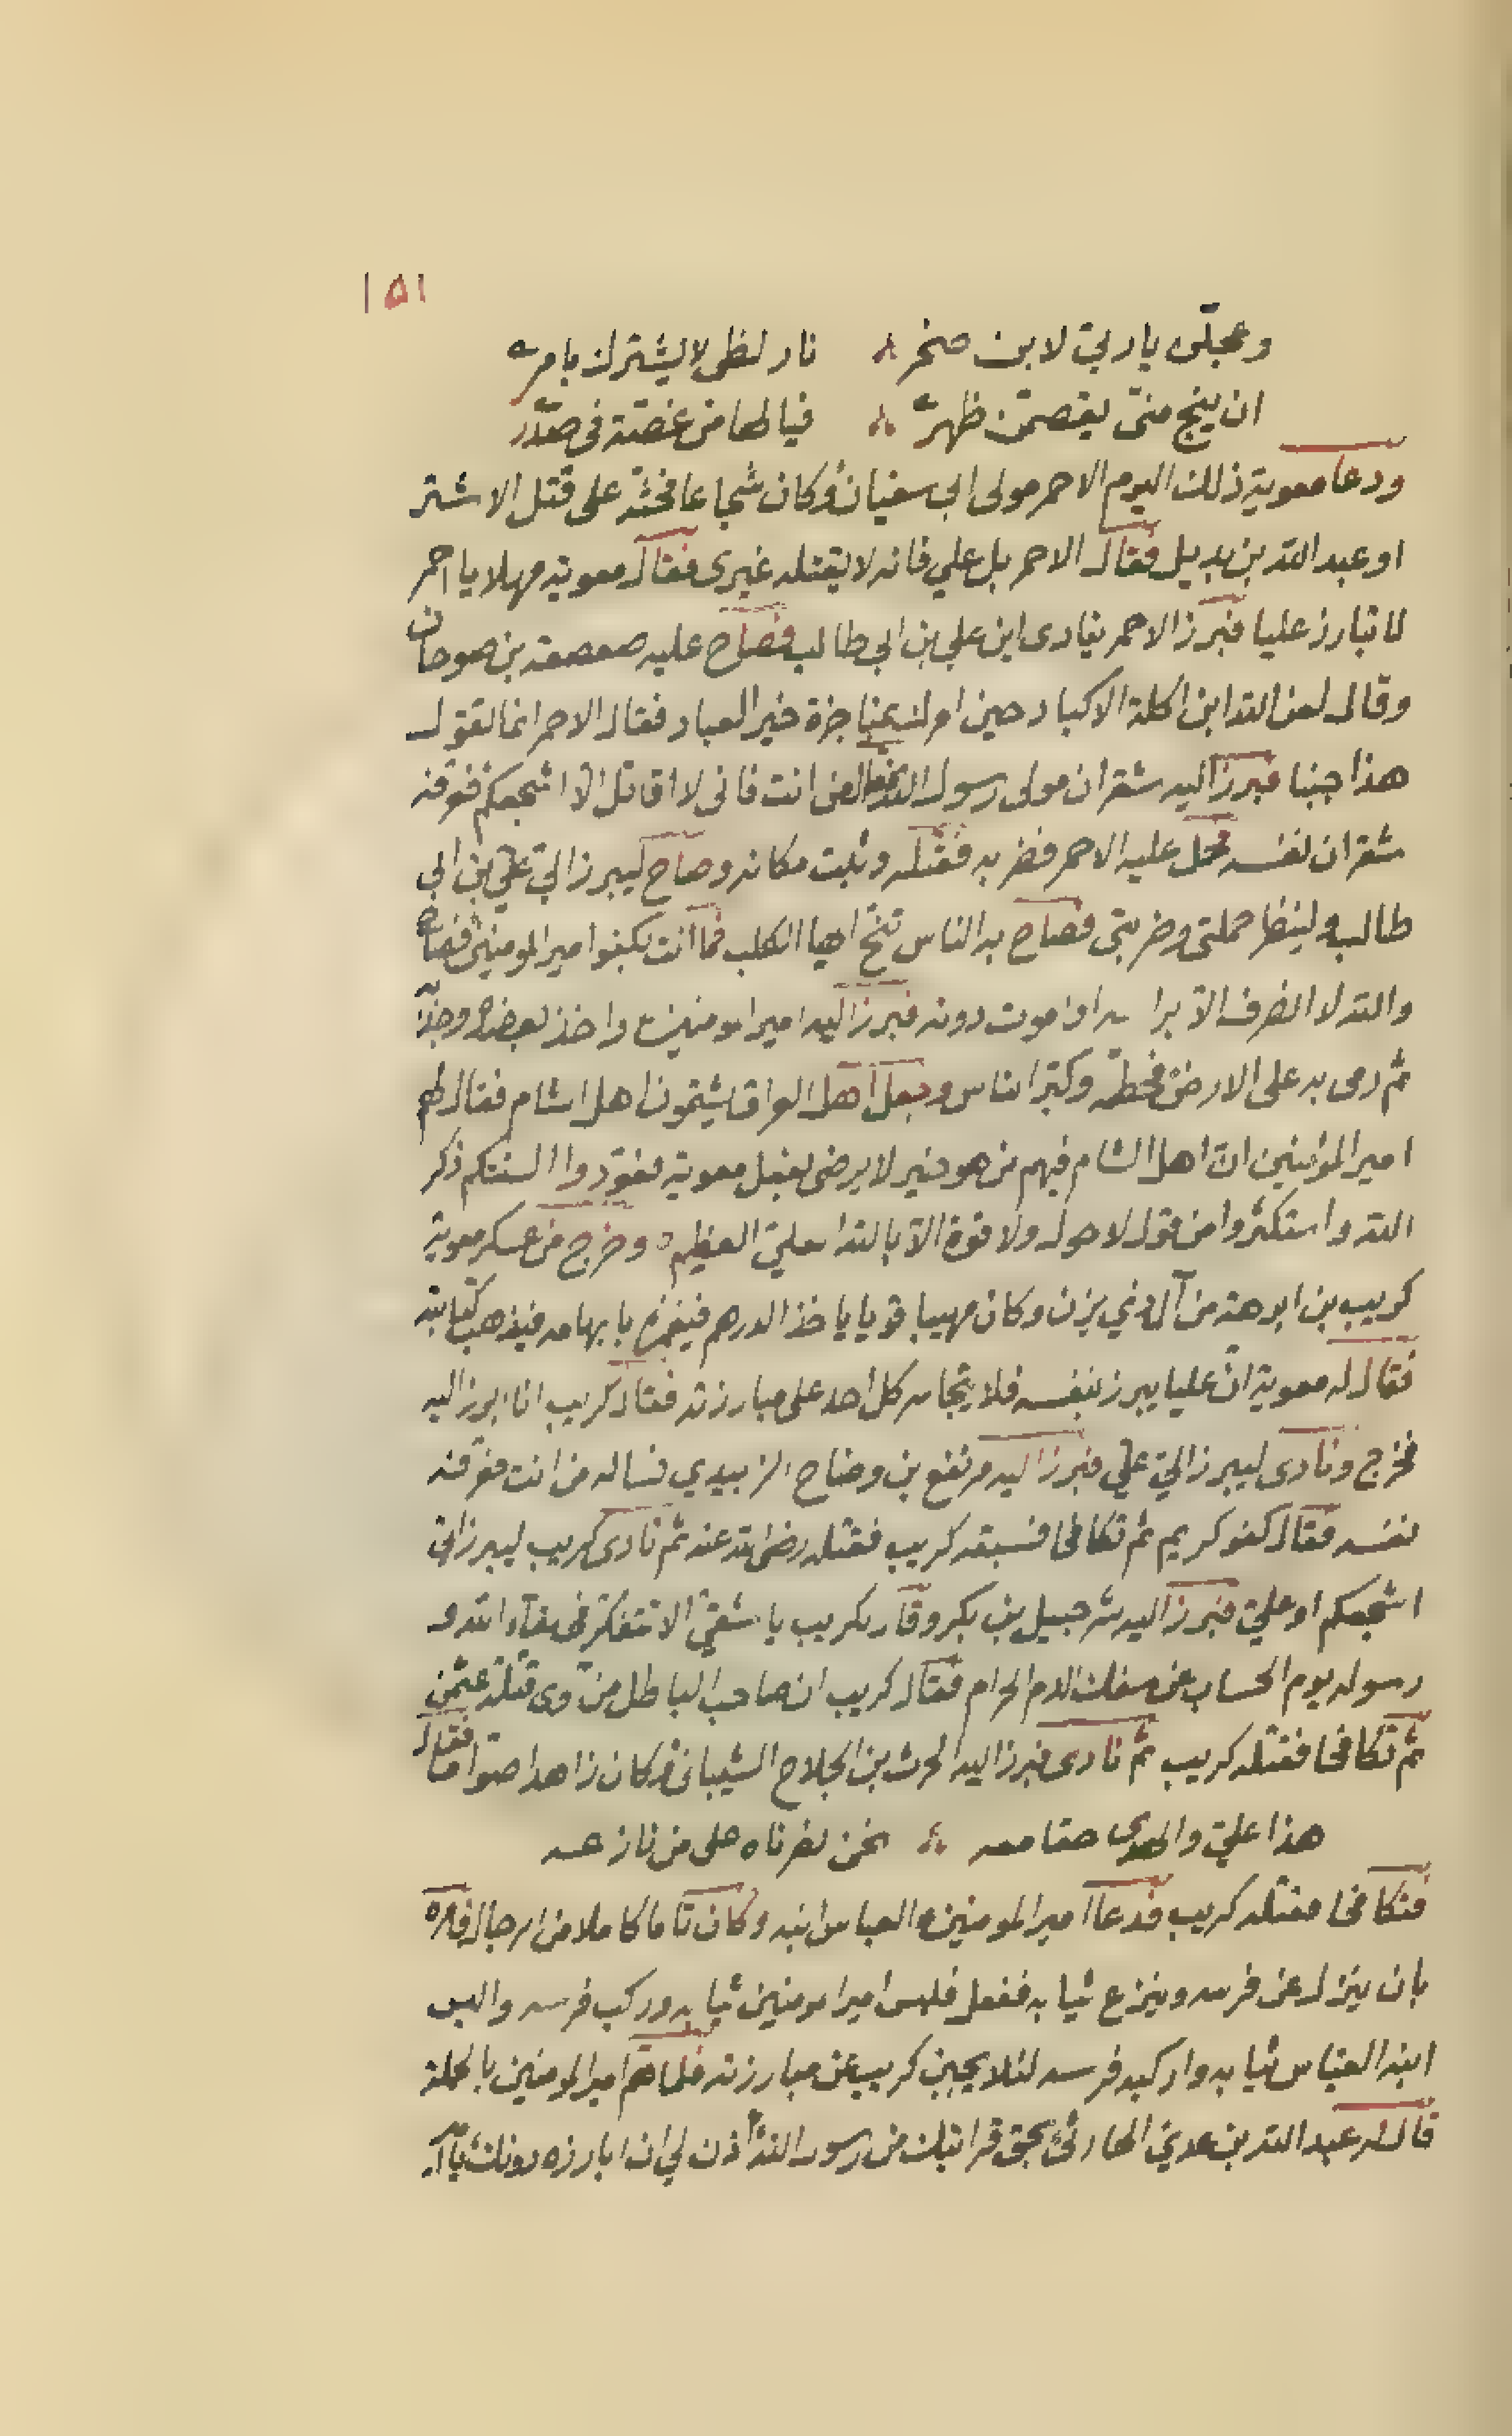 ١٥١
وعجلى يا ربي لابن صخر ؞ نار لظى لا يشترك بامره
ان ينج منى يقصمن ظهره ؞ فيا لها من غصة فى صدره
ودعا معوية ذلك اليوم الاحمر مولى ابى سفيان وكان شجاعا فحثه على قتل الاشتر
او عبد الله بن بديل فقال الاحمر بل علي فانه لا يقتله غيرى فقال معوية مهلا يا احمر
لا تبارز عليا فبرز الاحمر ينادى اين علي بن ابي طالب فصاح عليه صعصعة بن صوحان
وقال لعن الله ابن اكلة الاكباد حين امرك بمناجزة خير العباد فقال الاحمر انما تقول
هذا جبنا فبرز اليه شقران مولى رسول الله فقال من انت فانى لا اقاتل الا اشجعكم فعرفه
شقران نفسه فحمل عليه الاحمر فضربه فقتله وثبت مكانه وصاح ليبرز الي علي بن ابي
طالب ولينظر حملتى وضربتى فصاح به الناس تنح ايها الكلب فما انت بكفو امير المومنين فصاح
والله لا انصرف الا براسه او اموت دونه فبرز اليه امير المومنين واخذ بعضده وجذبه
ثم رمى به على الارض فحطمه وكبر الناس وجعل اهل العراق يشتمون اهل الشام فقال لهم
امير المؤمنين ان اهل الشام فيهم من هو خير لا يرضى بفعل معوية فعودوا السنتكم ذكر
الله واستكثروا من قول لا حول ولا قوة الا بالله العلي العظيم وخرج من عسكر معوية
كريب بن ابرهة من آل ذي يزن وكان مهيبا قويا ياخذ الدرهم فيغمزه بابهامه فيذهب كتابته
فقال له معوية ان عليا يبرز بنفسه فلا يتجاسر كل احد على مبارزته فقال كريب انا ابرز اليه
فخرج ونادى ليبرز الي علي فبرز اليه مرتفع بن وضاح الزبيدي فساله من انت فعرفه
نفسه فقال كفو كريم ثم تكافحا فسبقه كريب فقتله رضى الله عنه ثم نادى كريب ليبرز الي
اشجعكم او علي فبرز اليه شرحبيل بن بكر وقال لكريب يا شقي الا تتفكر فى لقاء الله و
رسوله يوم الحساب عن سفك الدم الحرام فقال كريب ان صاحب الباطل من آوى قتلة عثمن
ثم تكافحا فقتله كريب ثم نادى فبرز اليه الحرث بن الجلاح الشيبانى وكان زاهدا صواما فقال
هذا علي والهدى حقا معه ؞ نحن نصرناه على من نازعه
فتكافحا فقتله كريب فدعا امير المومنين العباس ابنه وكان تاما كاملا من الرجال فامره
بان ينزل عن فرسه وينزع ثيابه ففعل فلبس امير المومنين ثيابه وركب فرسه والبس
ابنه العباس ثيابه واركبه فرسه لئلا يجبن كريب عن مبارزته فلما هم امير المومنين بالحملة
قال له عبد الله بن عدي الحارثى بحق قرابتك من رسول الله ائذن لي ان ابارزه دونك يا